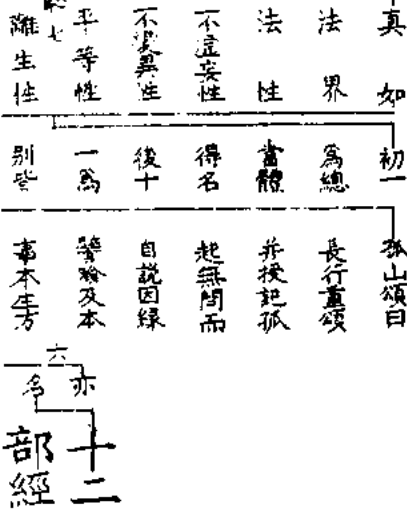 真如
法界
法性
不虛妄性
不變異性
平等性
離生性
初一
為總
當體
得名
後十
一為
別皆
孤山頌曰
長行重頌
并授記孤
起無問而
自說因緣
譬喻及本
事本生方
六
亦
名
十二
部經